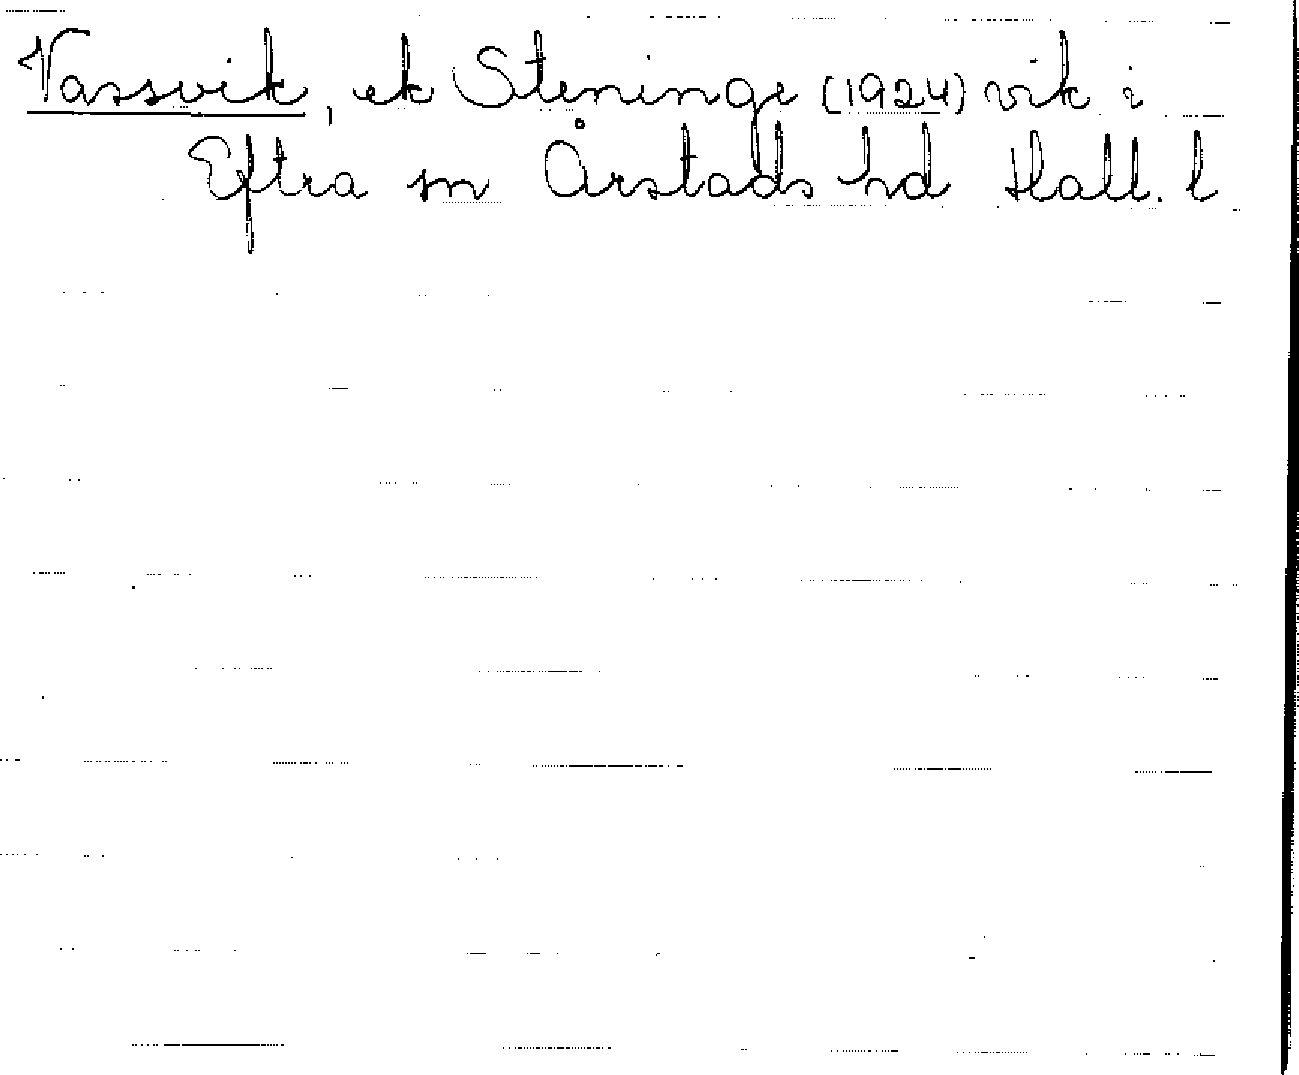 Vassvik, ek Steninge (1924) vik i
Eftra sn Årstads hd Hall. l